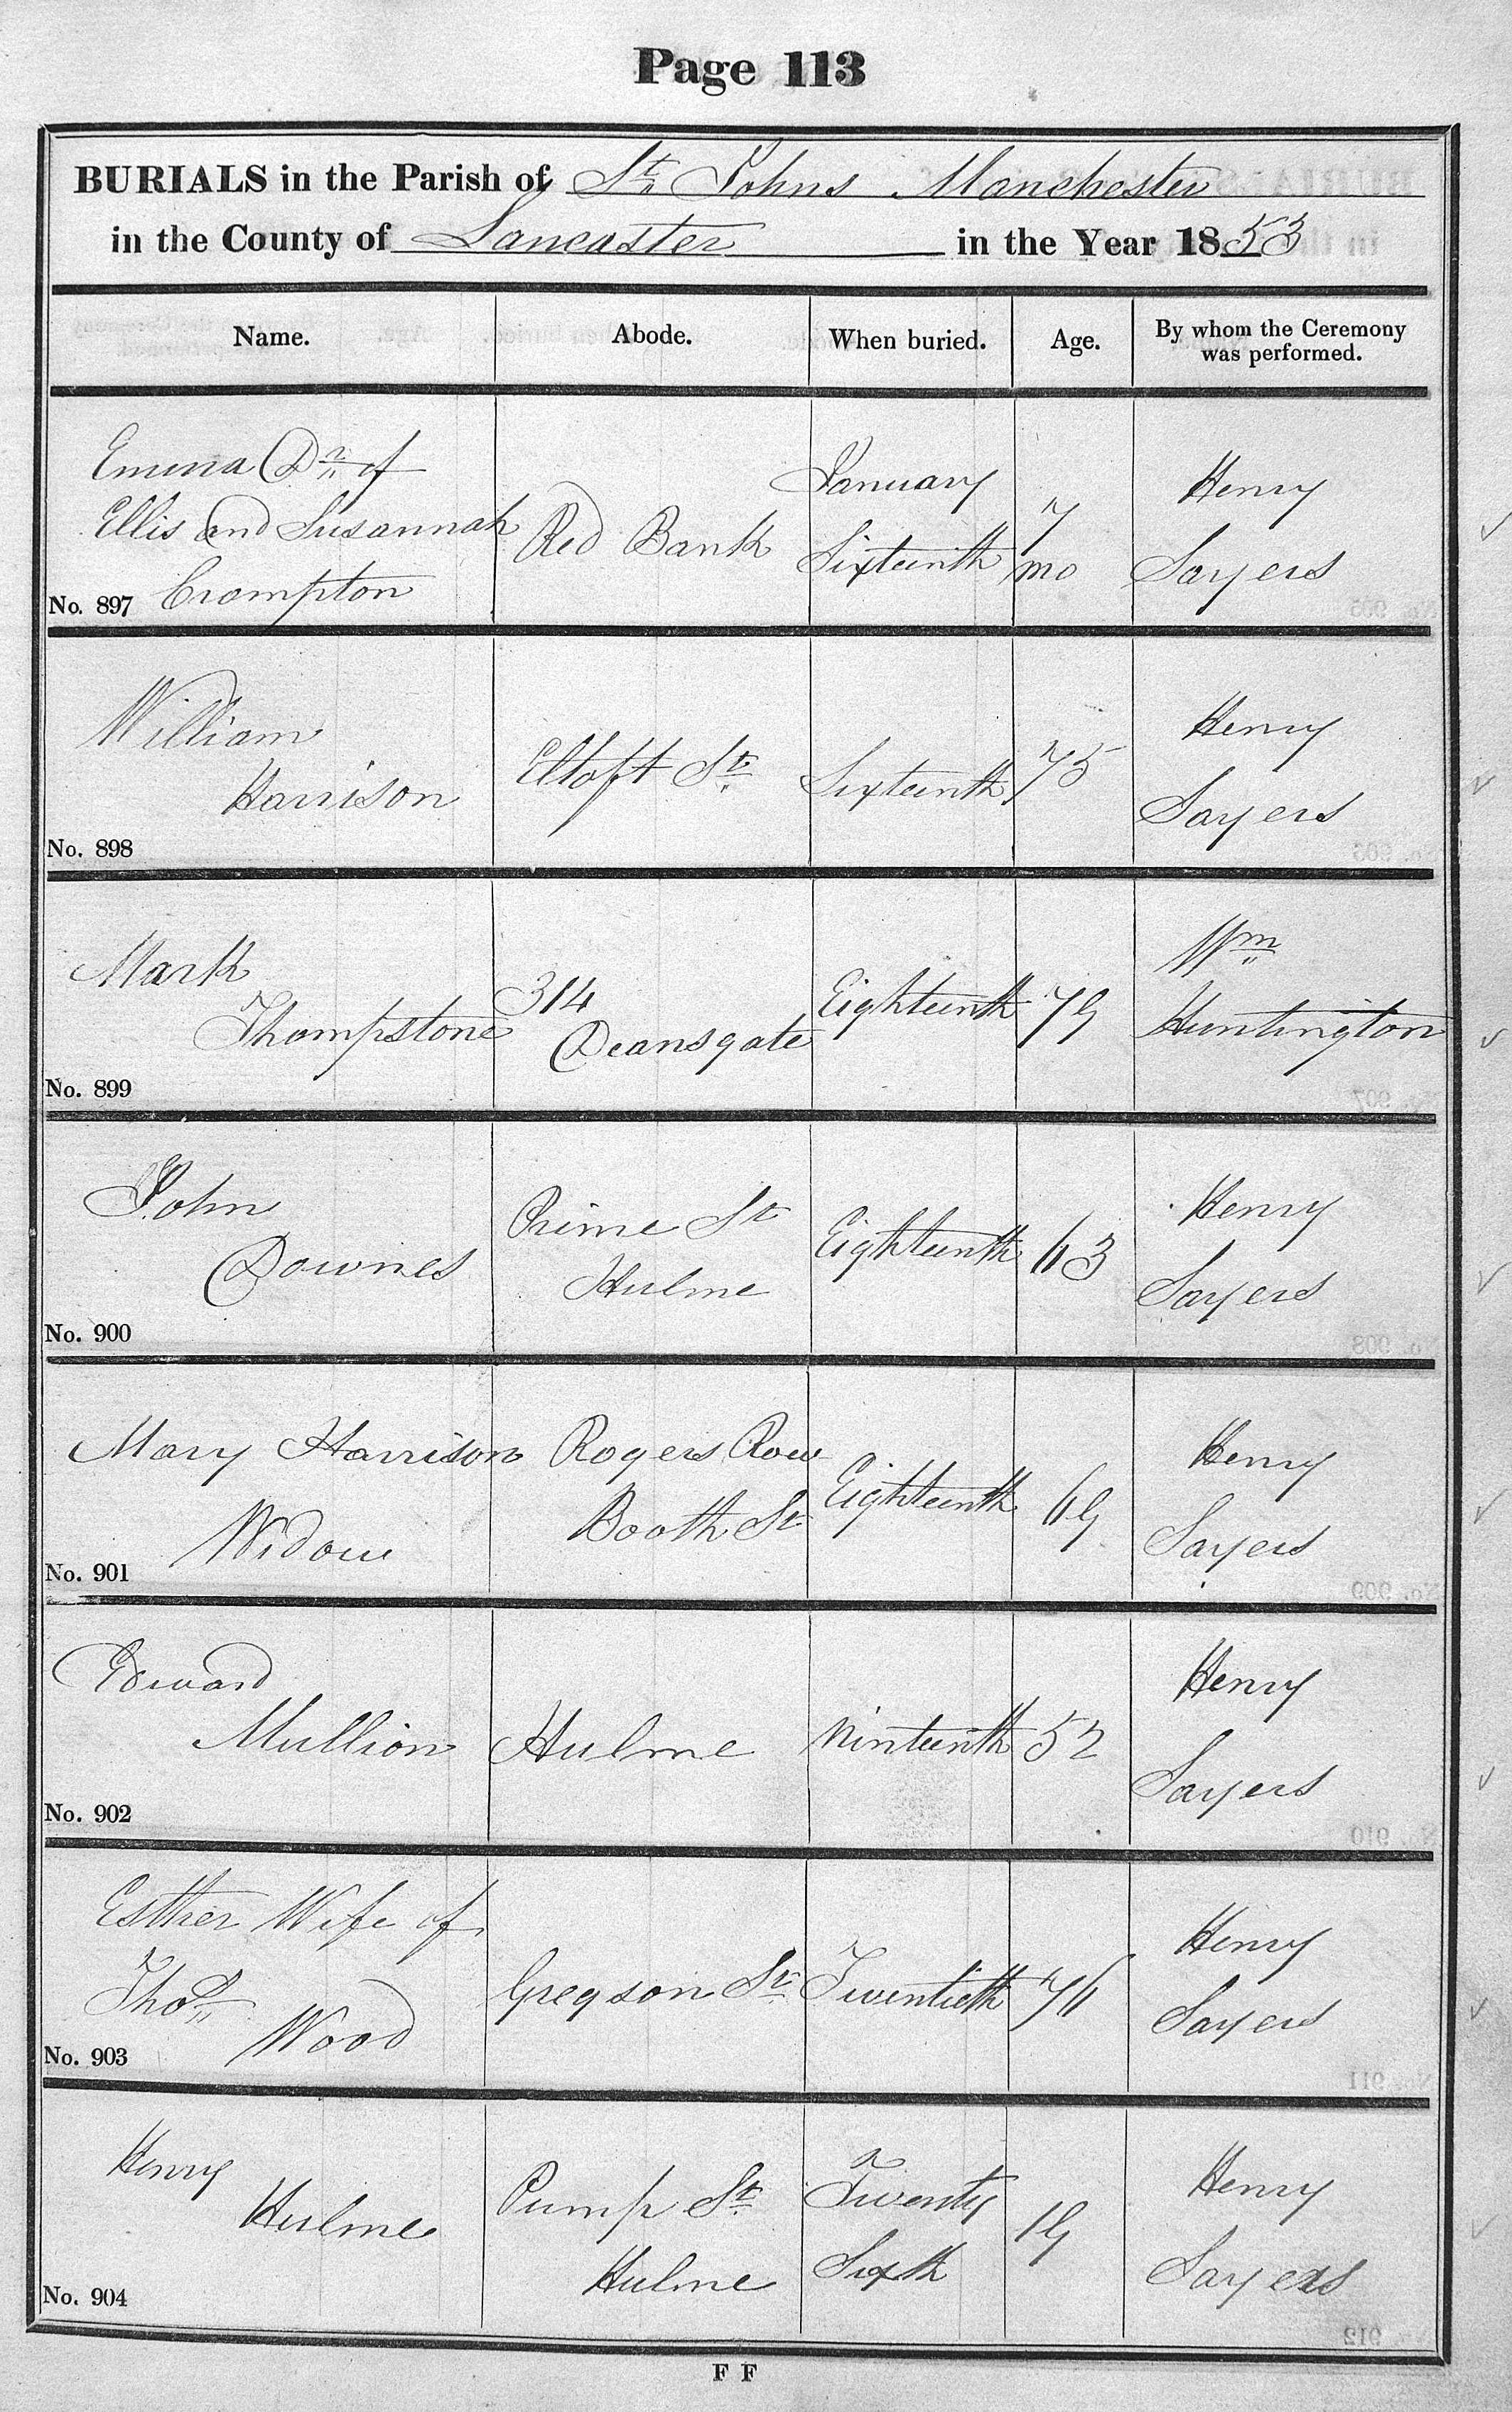 Page 113
BURIALS in the Parish of St. Johns Manchester
in the County of Lancaster in the Year 1853
Name. Abode. When buried. Age. By whom the Ceremony was performed.
Emma Dr. of
Ellis and Susannah
Crompton
No. 897
Red Bank
January
Sixteenth
7
mo
Henry
Sayers
William
Harrison
No. 898
Eltoft St.
Sixteenth
75
Henry
Sayers
Mark
Thompstone
No. 899
314
Deansgate
Eighteenth
79
Wm
Huntington
John
Downes
No. 900
Prime St
Hulme
Eighteenth
63
Henry
Sayers
Mary Harrison
Widow
No. 901
Rogers Row
Booth St
Eighteenth
69
Henry
Sayers
Edward
Mullion
No. 902
Hulme
Ninteenth
52
Henry
Sayers
Esther Wife of
Thos
Wood
No. 903
Gregson St.
Twentieth
76
Henry
Sayers
Henry
Hulme
No. 904
Pump St.
Hulme
Twenty
Sixth
19
Henry
Sayers
F F